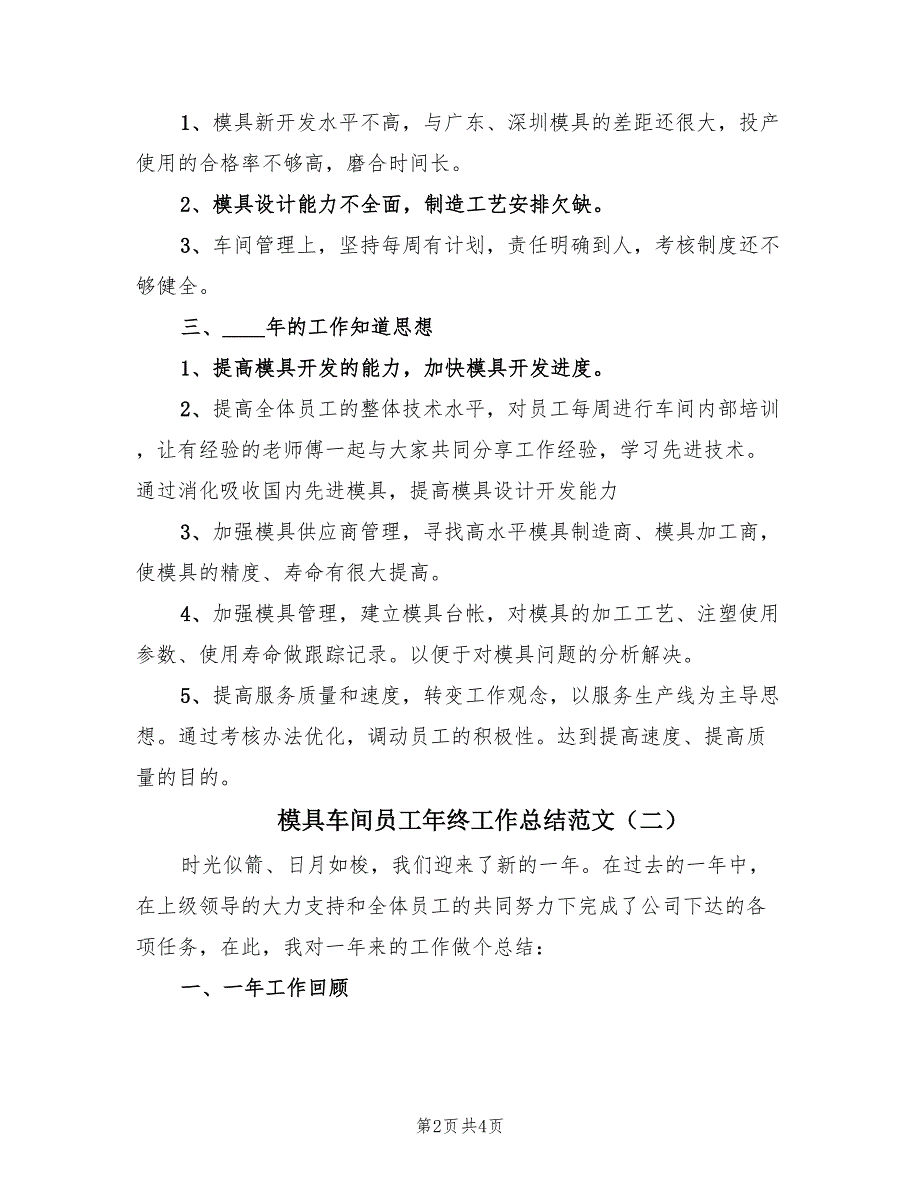 1、模具新开发水平不高，与广东、深圳模具的差距还很大，投产
使用的合格率不够高，磨合时间长。
2、模具设计能力不全面，制造工艺安排欠缺。
3、车间管理上，坚持每周有计划，责任明确到人，考核制度还不
够健全。
三、____年的工作知道思想
1、提高模具开发的能力，加快模具开发进度。
2、提高全体员工的整体技术水平，对员工每周进行车间内部培训
，让有经验的老师傅一起与大家共同分享工作经验，学习先进技术。
通过消化吸收国内先进模具，提高模具设计开发能力
3、加强模具供应商管理，寻找高水平模具制造商、模具加工商，
使模具的精度、寿命有很大提高。
4、加强模具管理，建立模具台帐，对模具的加工工艺、注塑使用
参数、使用寿命做跟踪记录。以便于对模具问题的分析解决。
5、提高服务质量和速度，转变工作观念，以服务生产线为主导思
想。通过考核办法优化，调动员工的积极性。达到提高速度、提高质
量的目的。
模具车间员工年终工作总结范文（二）
时光似箭、日月如梭，我们迎来了新的一年。在过去的一年中，
在上级领导的大力支持和全体员工的共同努力下完成了公司下达的各
项任务，在此，我对一年来的工作做个总结：
一、一年工作回顾
第2页 共4页